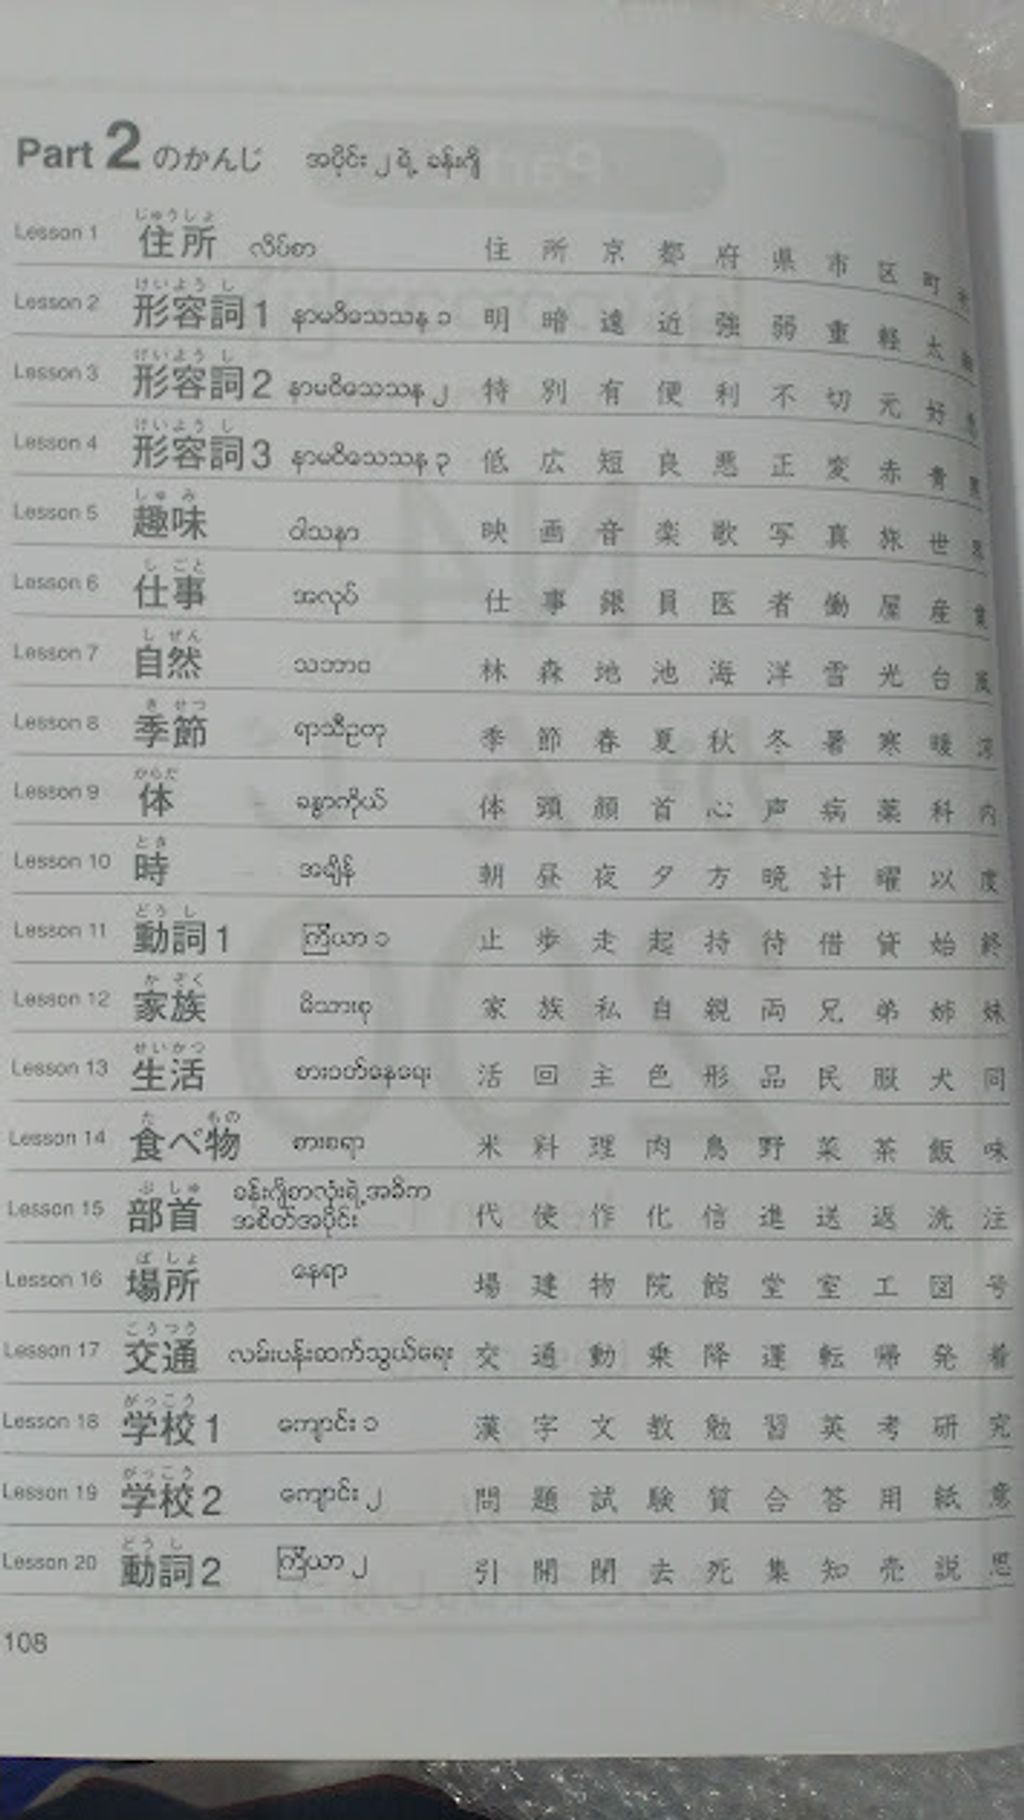 Part 2 のかんじ အပိုင်း ၂ ရဲ့ ခန်းဂျိ
じゅうしょ
Lesson 1 住所 လိပ်စာ 住 所 京 都 府 県 市 区 町
けいようし
Lesson 2 形容詞1 နာမဝိသေသန ၁ 明 暗 遠 近 強 弱 重 軽 太
けいようし
Lesson 3 形容詞2 နာမဝိသေသန ၂ 特 別 有 便 利 不 切 元 好
けいようし
Lesson 4 形容詞3 နာမဝိသေသန ၃ 低 広 短 良 悪 正 変 赤 青 黒
しゅみ
Lesson 5 趣味 ဝါသနာ 映 画 音 楽 歌 写 真 旅 世 界
しごと
Lesson 6 仕事 အလုပ် 仕 事 銀 員 医 者 働 屋 産 業
しぜん
Lesson 7 自然 သဘာဝ 林 森 地 池 海 洋 雪 光 台 風
きせつ
Lesson 8 季節 ရာသီဥတု 季 節 春 夏 秋 冬 暑 寒 暖 涼
からだ
Lesson 9 体 ခန္ဓာကိုယ် 体 頭 顔 首 心 声 病 薬 科 内
とき
Lesson 10 時 အချိန် 朝 昼 夜 夕 方 晩 計 曜 以 度
どうし
Lesson 11 動詞1 ကြိယာ ၁ 止 歩 走 起 持 待 借 貸 始 終
かぞく
Lesson 12 家族 မိသားစု 家 族 私 自 親 両 兄 弟 姉 妹
せいかつ
Lesson 13 生活 စားဝတ်နေရေး 活 回 主 色 形 品 民 服 犬 同
たべもの
Lesson 14 食べ物 စားစရာ 米 料 理 肉 鳥 野 菜 茶 飯 味
ぶしゅ
Lesson 15 部首 ခန်းဂျိစာလုံးရဲ့အဓိက
အစိတ်အပိုင်း 代 使 作 化 信 進 送 返 洗 注
ばしょ
Lesson 16 場所 နေရာ 場 建 物 院 館 堂 室 工 図 号
こうつう
Lesson 17 交通 လမ်းပန်းဆက်သွယ်ရေး 交 通 動 乗 降 運 転 帰 発 着
がっこう
Lesson 18 学校1 ကျောင်း ၁ 漢 字 文 教 勉 習 英 考 研 究
がっこう
Lesson 19 学校2 ကျောင်း ၂ 問 題 試 験 質 合 答 用 紙 意
どうし
Lesson 20 動詞2 ကြိယာ ၂ 引 開 閉 去 死 集 知 売 説 思
108